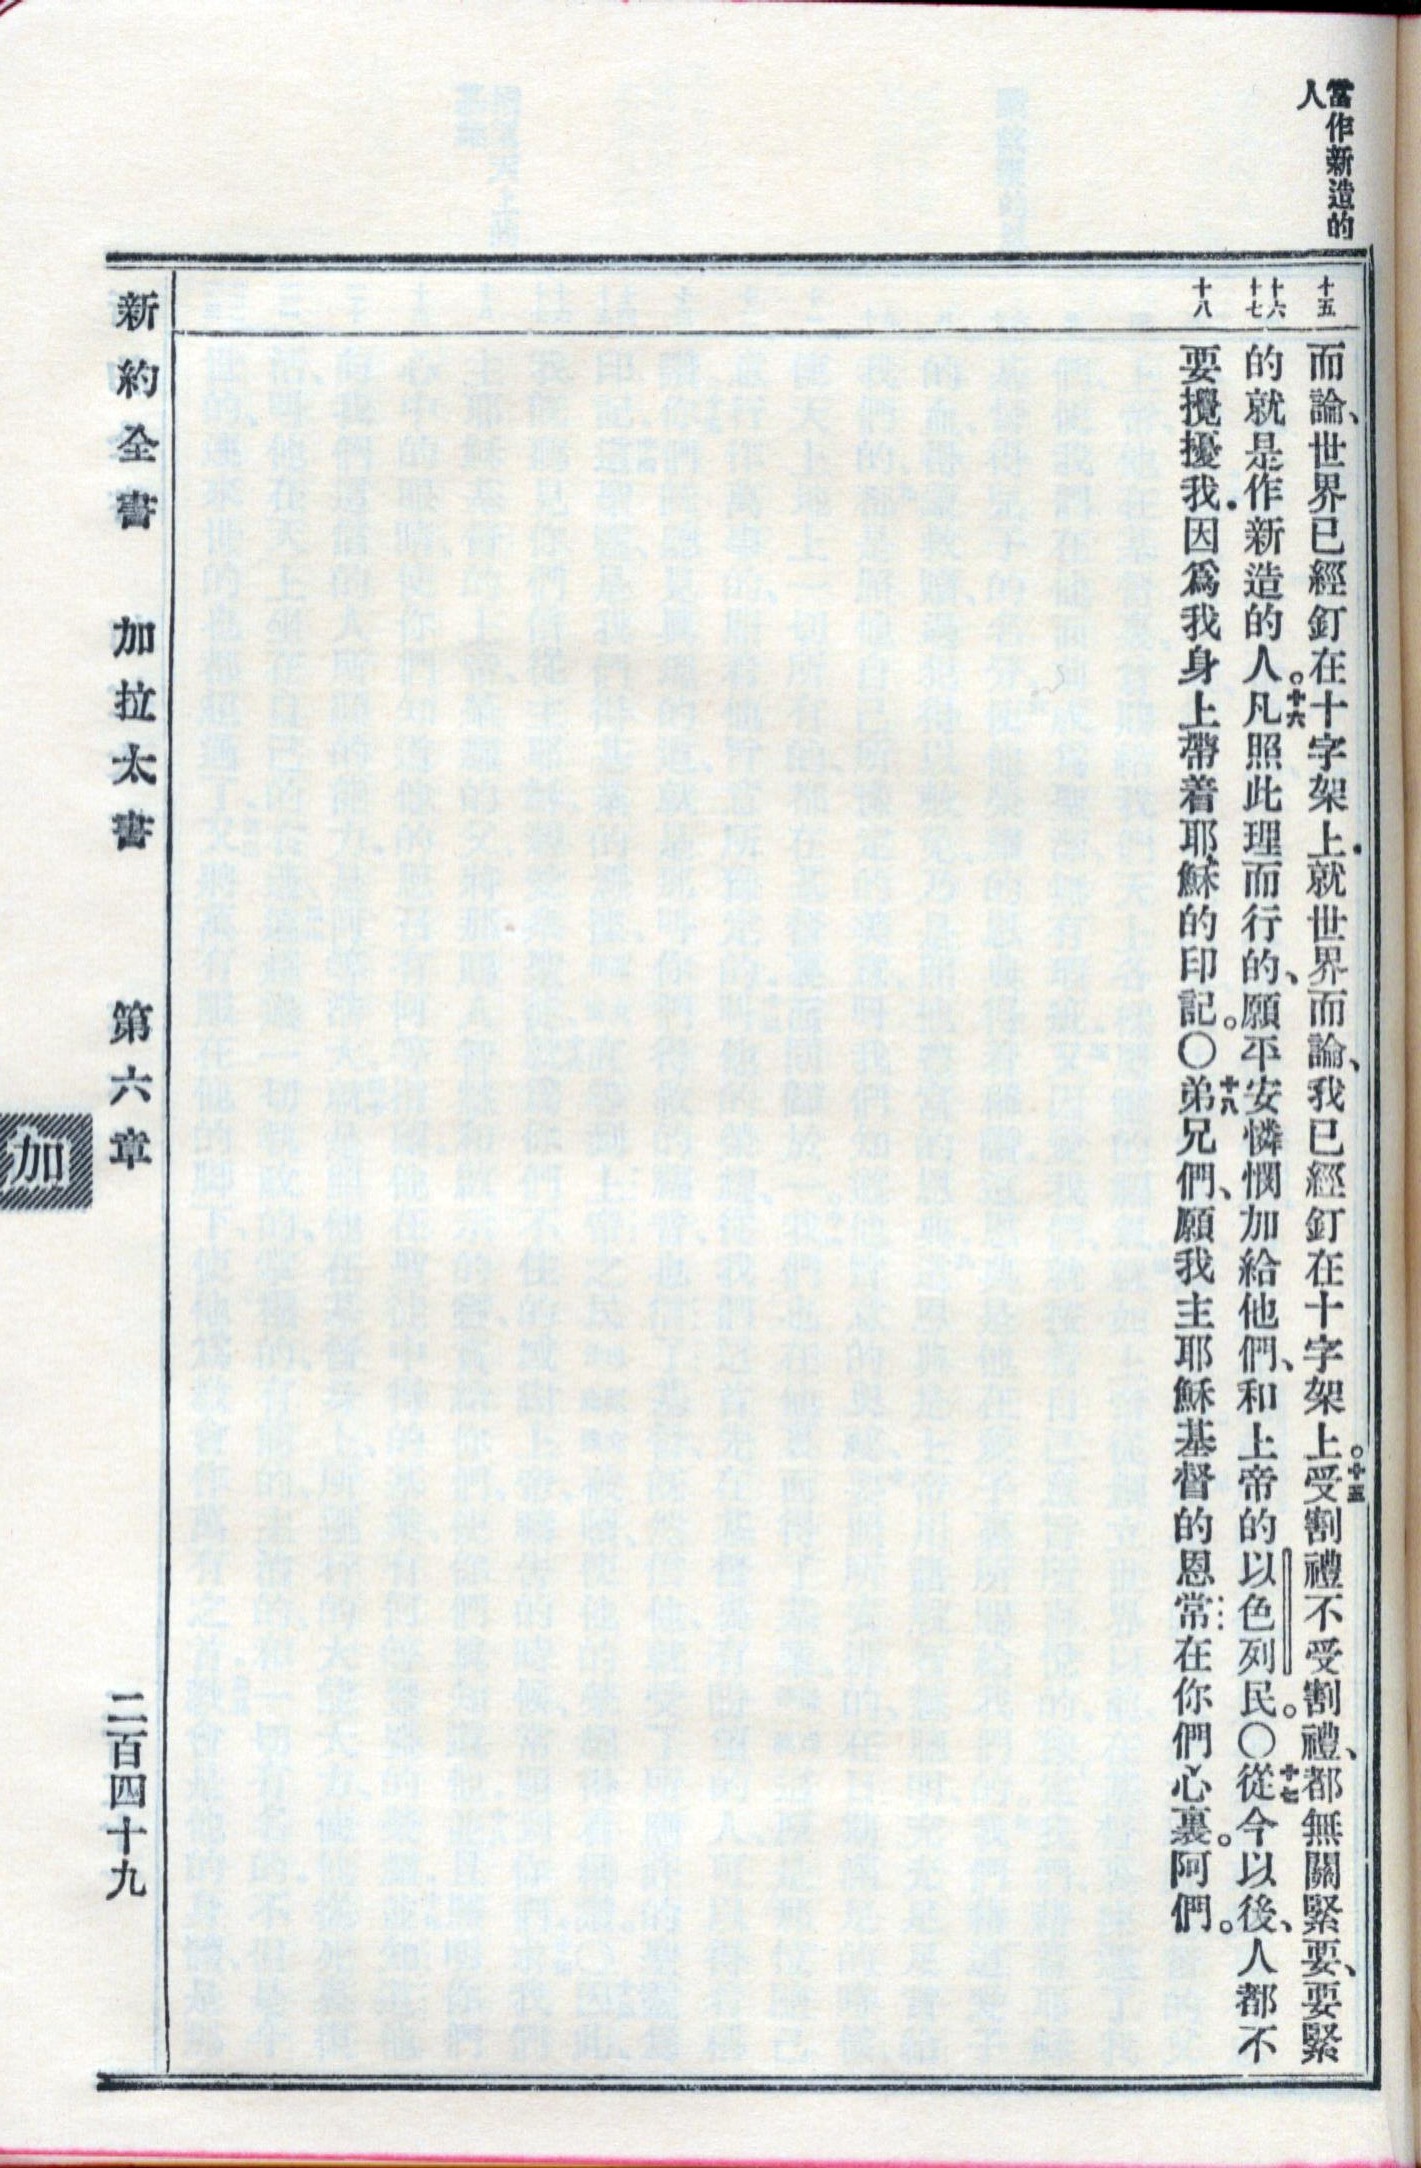 當作新造的
人
十五
十六
十七
十八
而論、世界已經釘在十字架上．就世界而論、我已經釘在十字架上。十五受割禮不受割禮、都無關緊要、要緊
的就是作新造的人。十六凡照此理而行的、願平安憐憫加給他們、和上帝的以色列民。〇十七從今以後、人都不
要攪擾我．因爲我身上帶着耶穌的印記。〇十八弟兄們、願我主耶穌基督的恩常在你們心裏。阿們。
新約全書 加拉太書 第六章 二百四十九
加